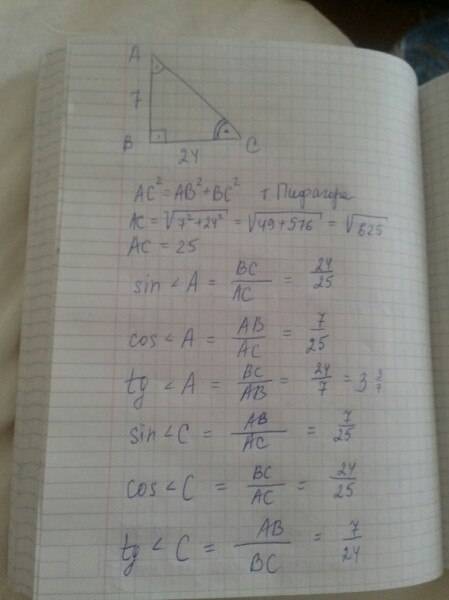 A
7
B
24
C
AC² = AB² + BC² т. Пифагора
AC = √7² + 24² = √49 + 576 = √625
AC = 25
sin < A = BC/AC = 24/25
cos < A = AB/AC = 7/25
tg < A = BC/AB = 24/7 = 3 3/7
sin < C = AB/AC = 7/25
cos < C = BC/AC = 24/25
tg < C = AB/BC = 7/24